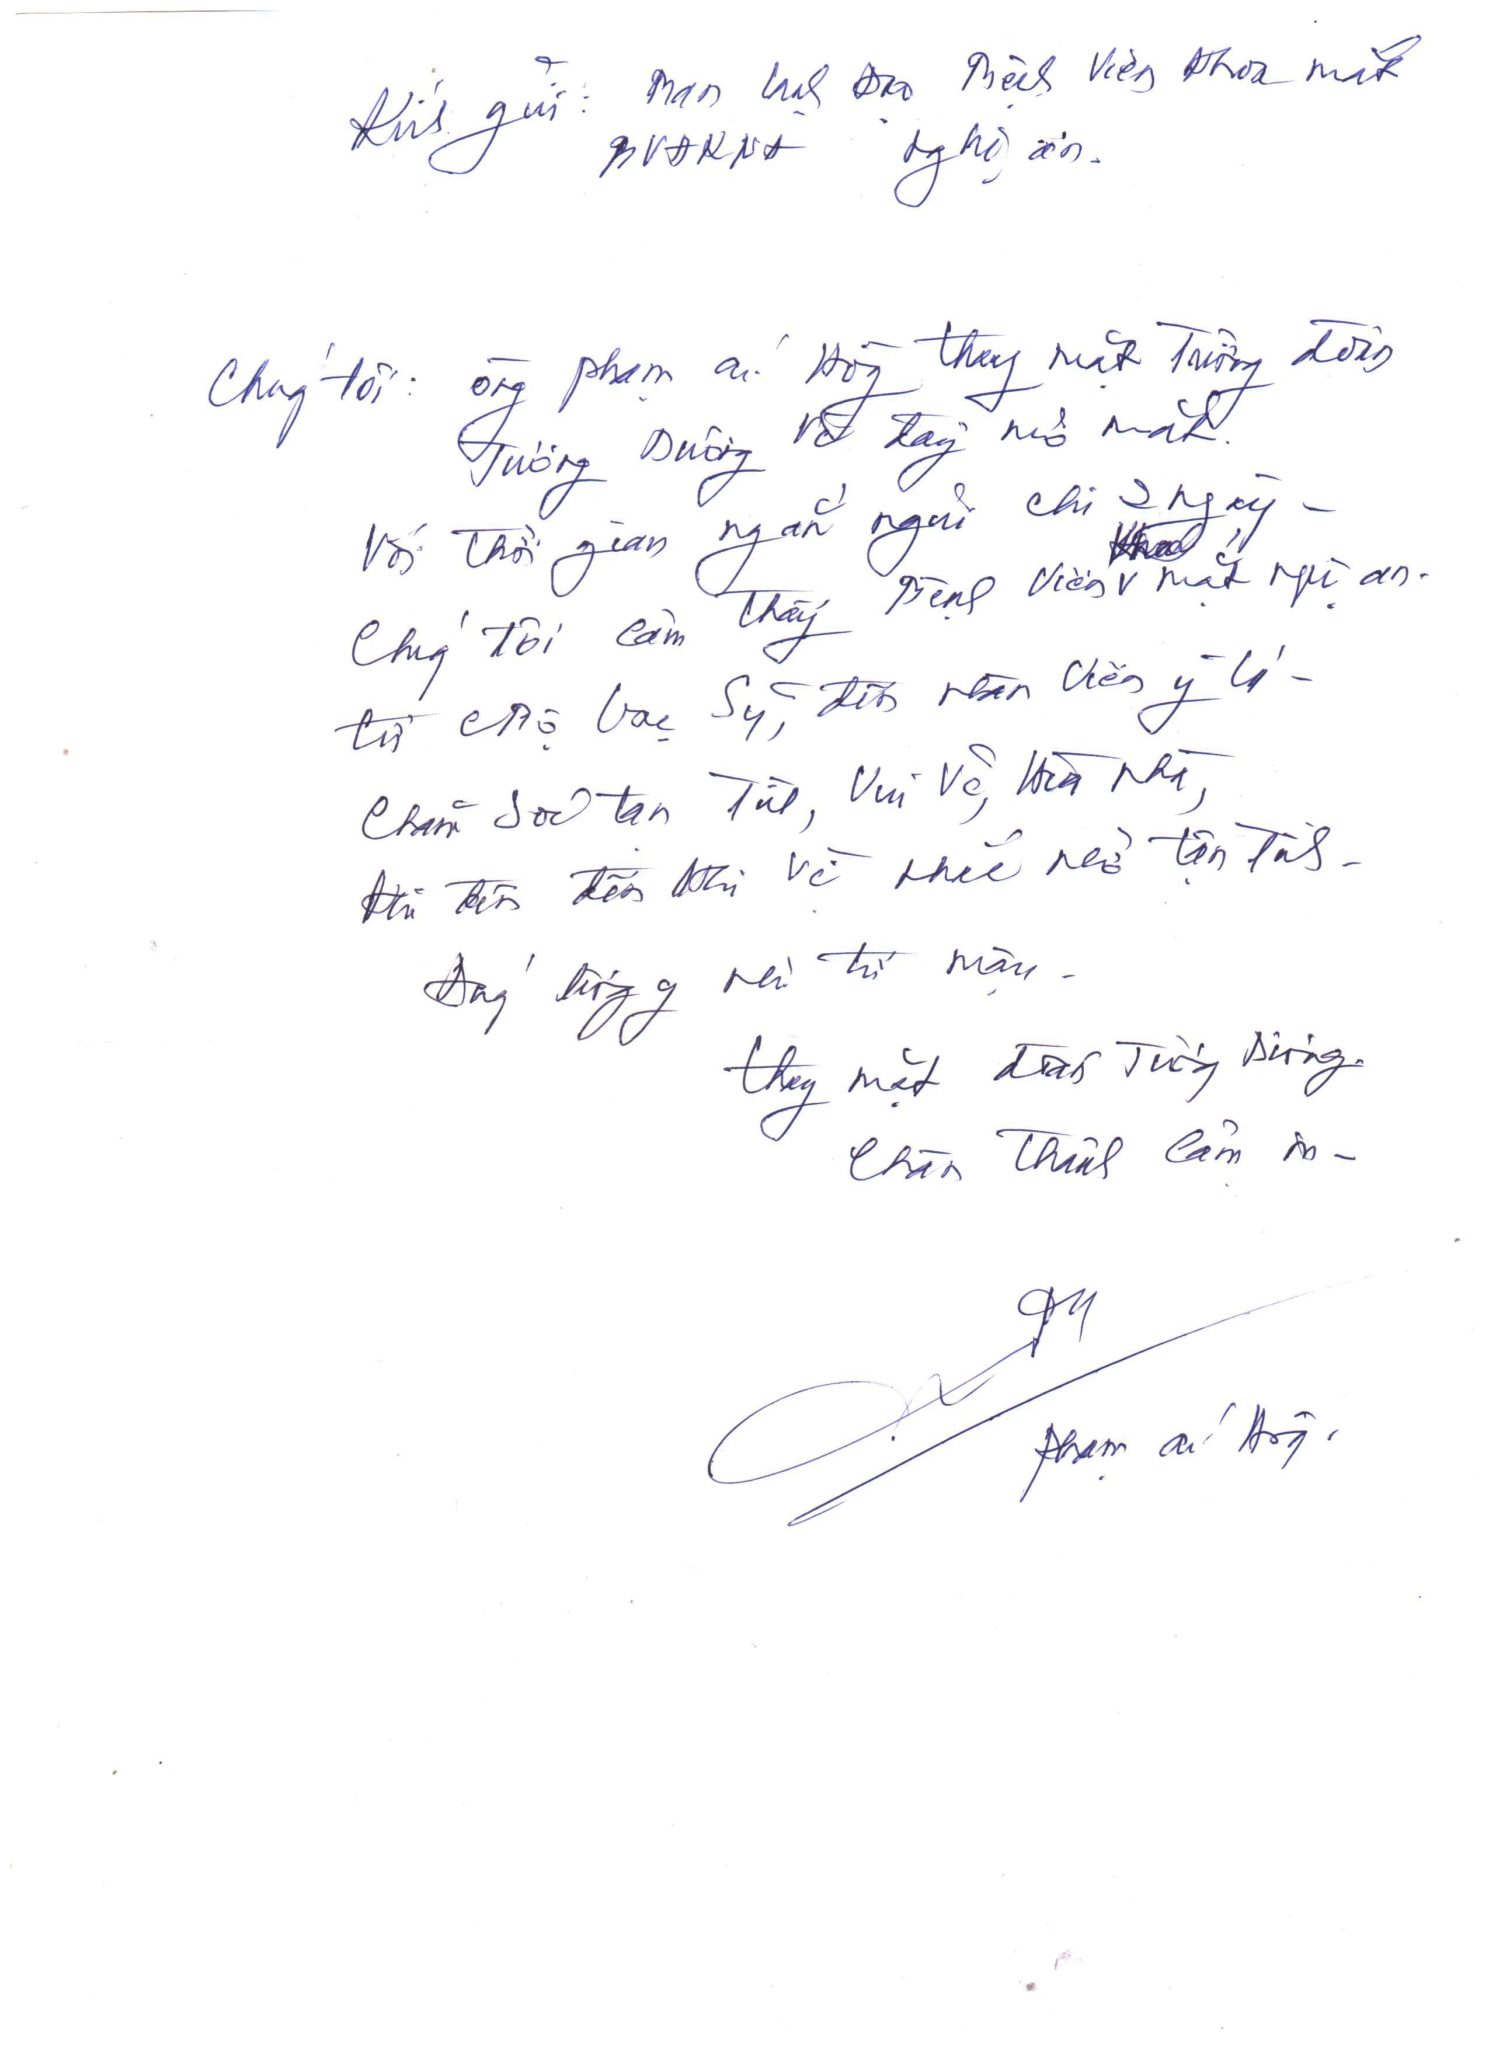 Kính gửi: Ban lãnh đạo Bệnh Viện Khoa mắt
BVĐKNA nghệ an.
Chúng tôi: ông phạm Hồng thay mặt Trưởng đoàn
Tương Dương Về đây mổ mắt.
Với Thời gian ngắn ngủi chỉ 2 ngày -
Chúng Tôi cảm Thấy Bệnh Viện mắt nghệ an.
từ bác Sỹ, đến nhân viên y tá -
Chăm Sóc tận Tình, Vui Vẻ, Hòa Nhã,
Khi đến đến khi Về nhắc nhở tận Tình -
Đúng như từ mẫu -
thay mặt đoàn Tương Dương.
Chân Thành cảm ơn -
phạm Hồng.